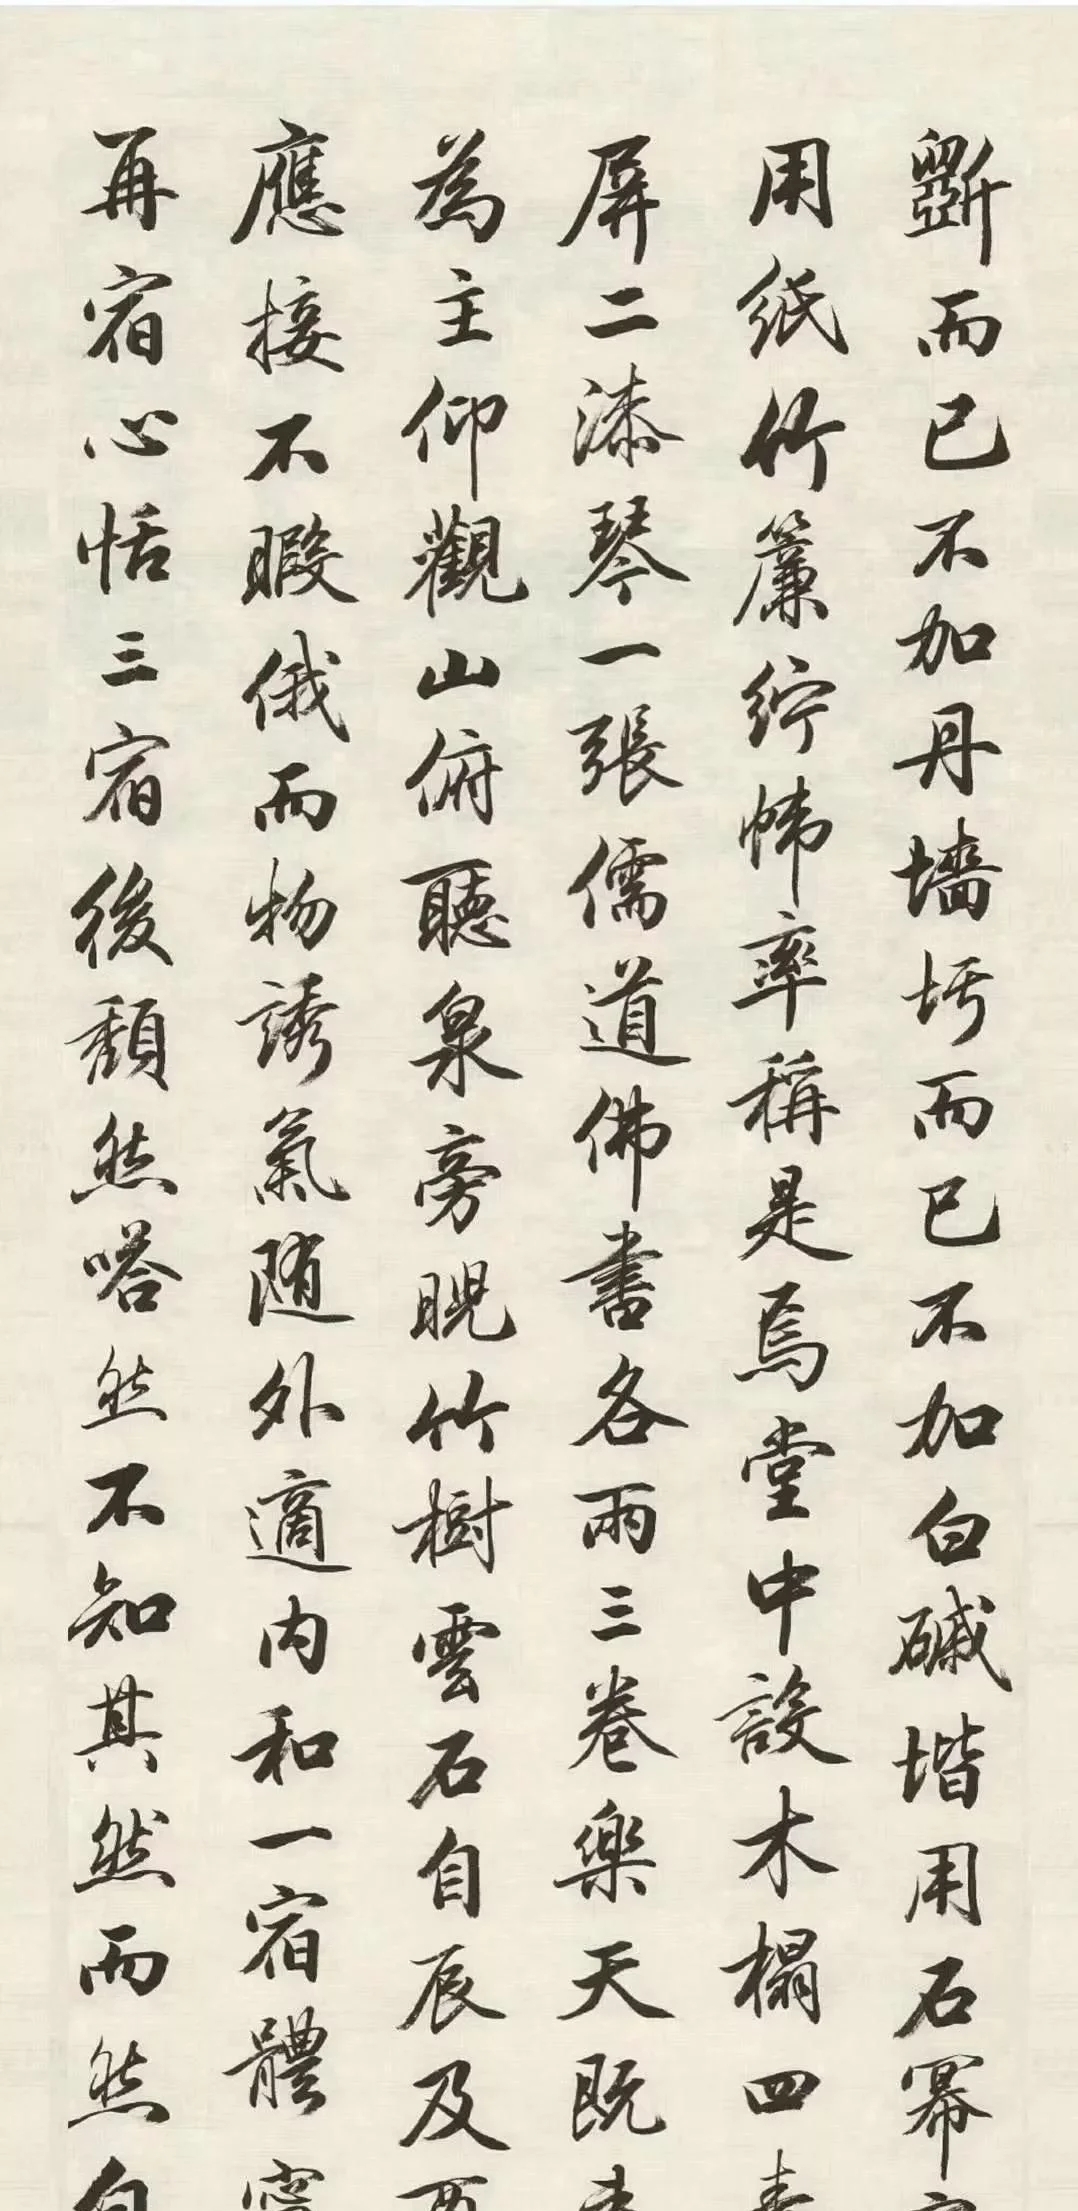 斲而已不加丹墻圬而已不加白磩堦用石冪
用紙竹簾紵幃率稱是焉堂中設木榻四素
屏二漆琴一張儒道佛書各兩三卷樂天既
為主仰觀山俯聽泉旁睨竹樹雲石自辰及酉
應接不暇俄而物誘氣随外適内和一宿體寧
再宿心恬三宿後頹然嗒然不知其然而然自